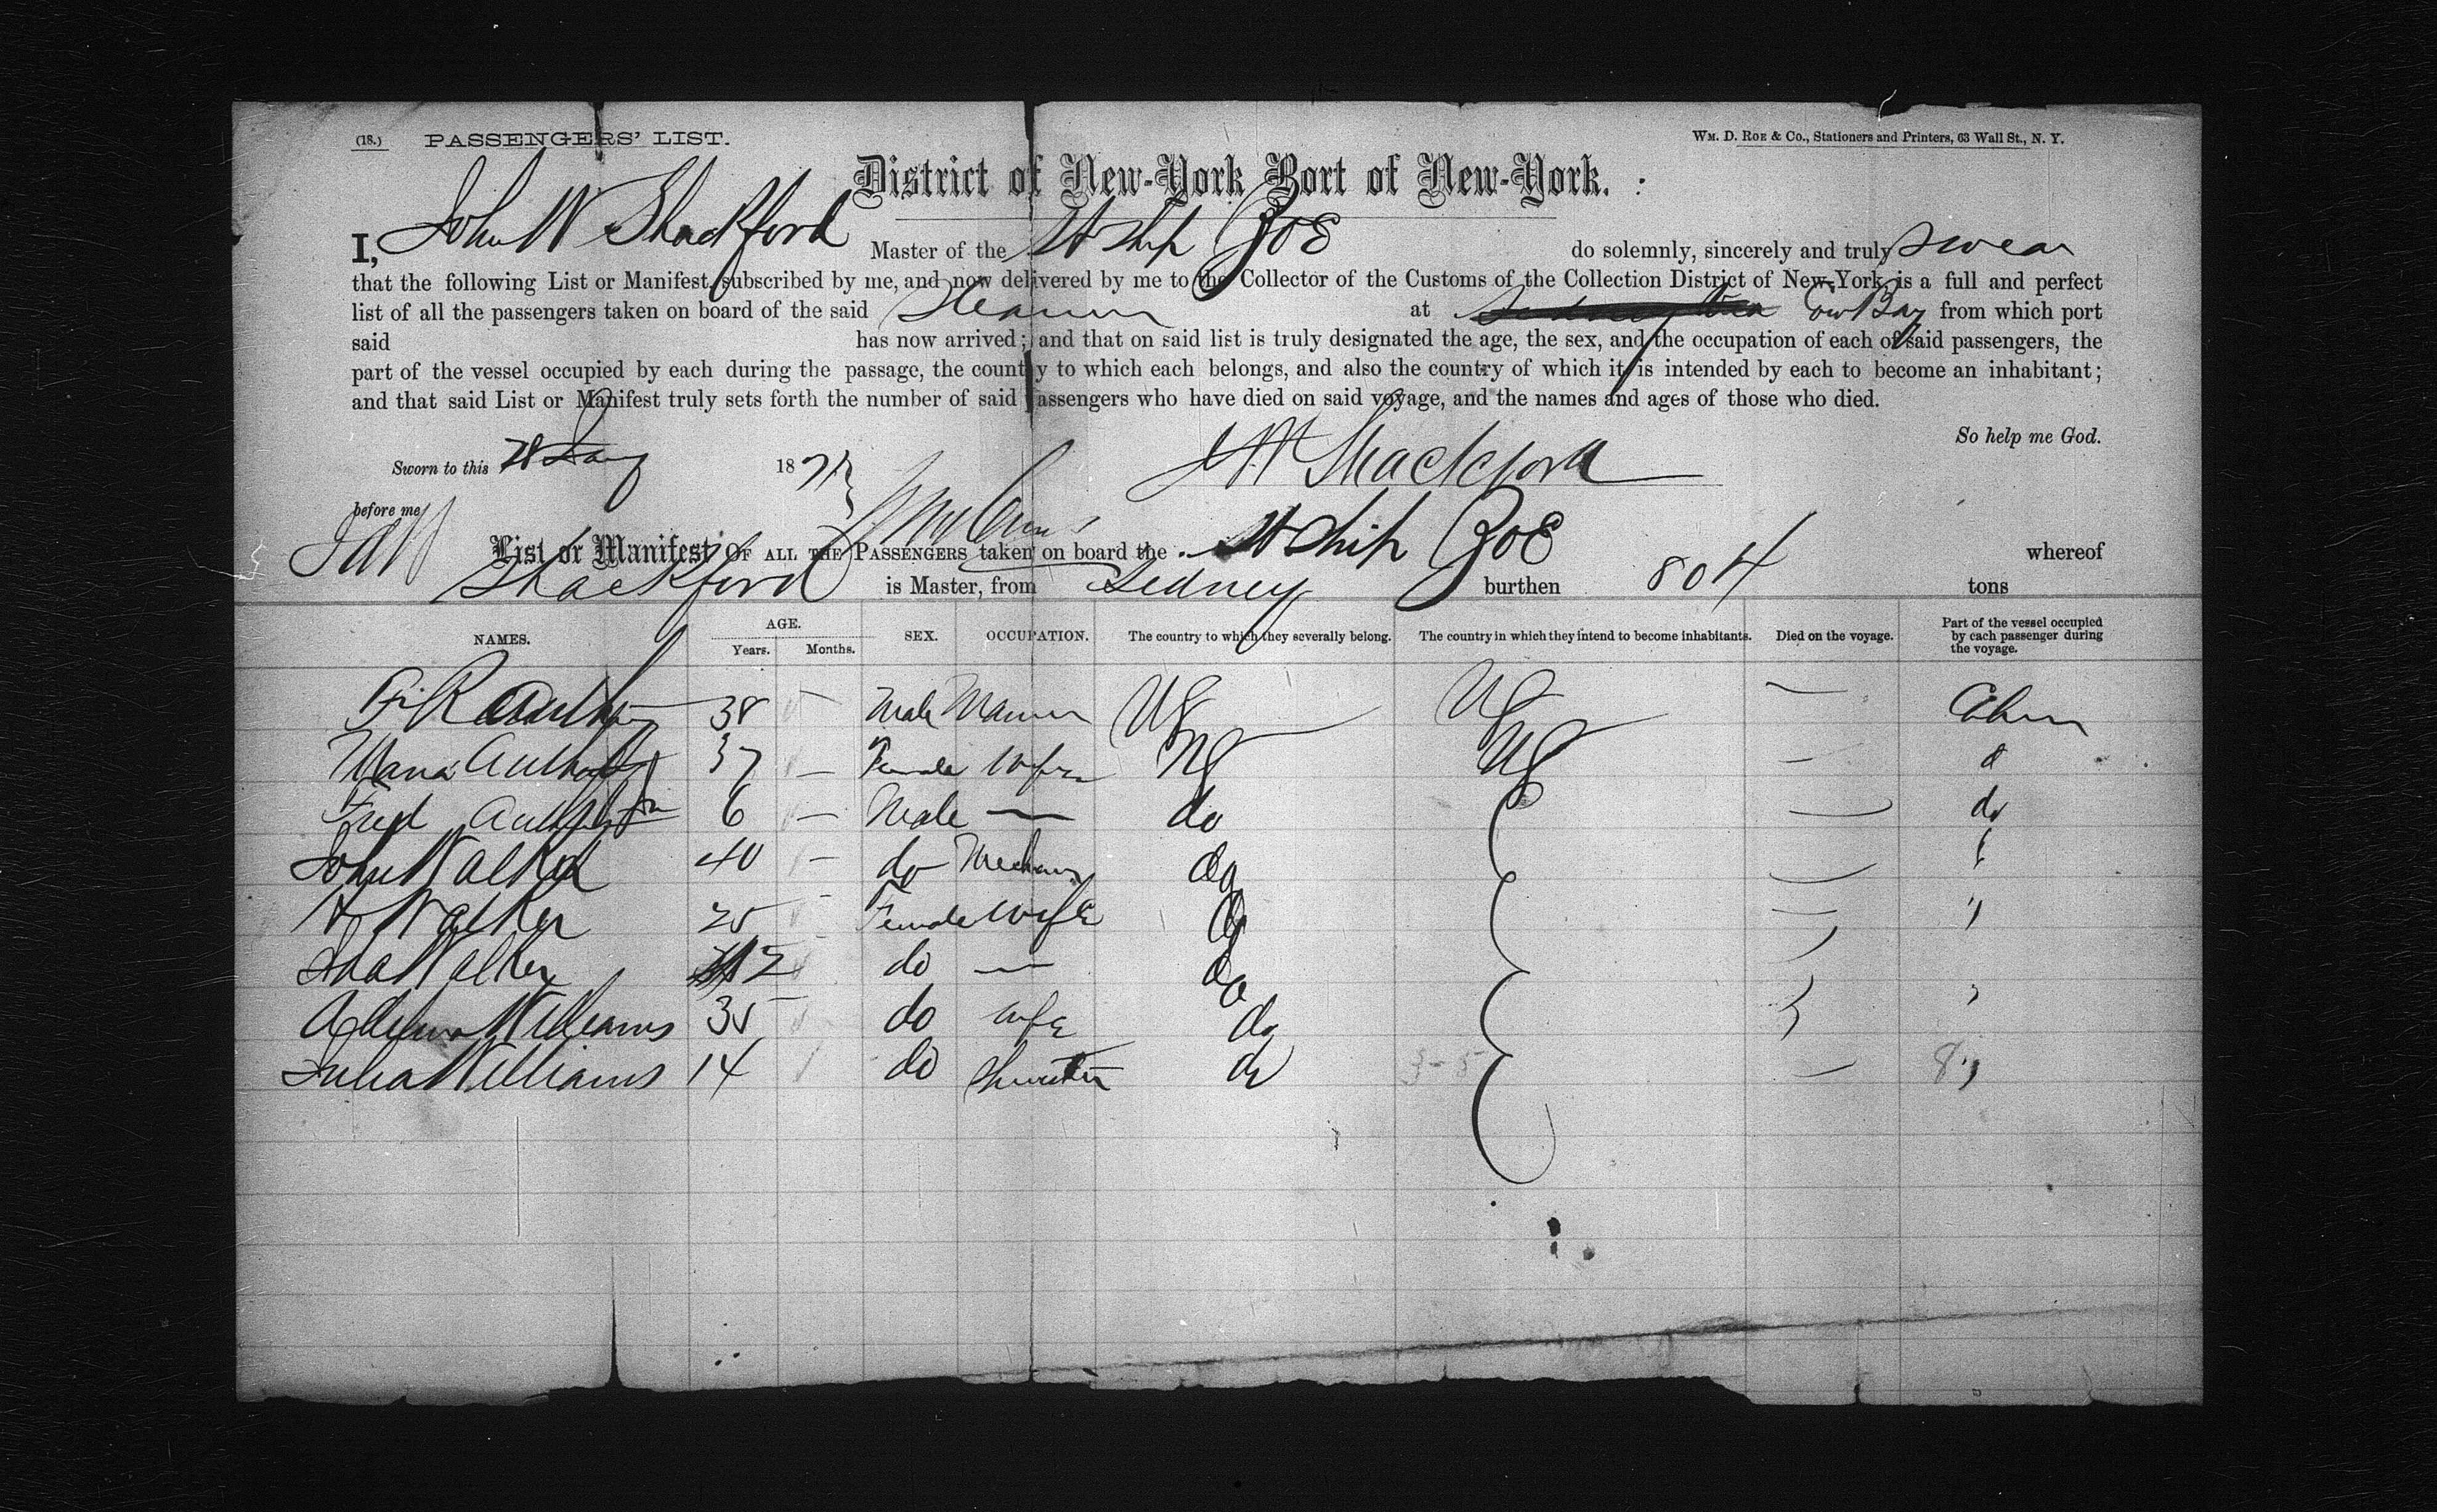 (18.) PASSENGERS' LIST.
WM. D. ROE & CO., Stationers and Printers, 63 Wall St., N. Y.
District of New-York Port of New-York.
I, John W Shackford Master of the St Ship Zoe do solemnly, sincerely and truly swear
that the following List or Manifest, subscribed by me, and now delivered by me to the Collector of the Customs of the Collection District of New-York, is a full and perfect
list of all the passengers taken on board of the said Steamer at Cow Bay from which port
said has now arrived; and that on said list is truly designated the age, the sex, and the occupation of each of said passengers, the
part of the vessel occupied by each during the passage, the country to which each belongs, and also the country of which it is intended by each to become an inhabitant;
and that said List or Manifest truly sets forth the number of said passengers who have died on said voyage, and the names and ages of those who died.
So help me God.
Sworn to this 28 1871 J W Shackford
before me
List or Manifest OF ALL THE PASSENGERS taken on board the St Ship Zoe whereof
J W Shackford is Master, from Sedney burthen 804 tons
NAMES. AGE. Years. Months. SEX. OCCUPATION. The country to which they severally belong. The country in which they intend to become inhabitants. Died on the voyage. Part of the vessel occupied by each passenger during the voyage.
38 — Male US US —
Maria 37 — Female Wife US US — d
Fred 6 — Male — do — do
John Walker 40 — do do —
Walker 25 - Female Wife do — "
Ida Walker 12 do — do
Williams 35 - do wife do "
Julia Williams 14 do do 3-5 — 8 "